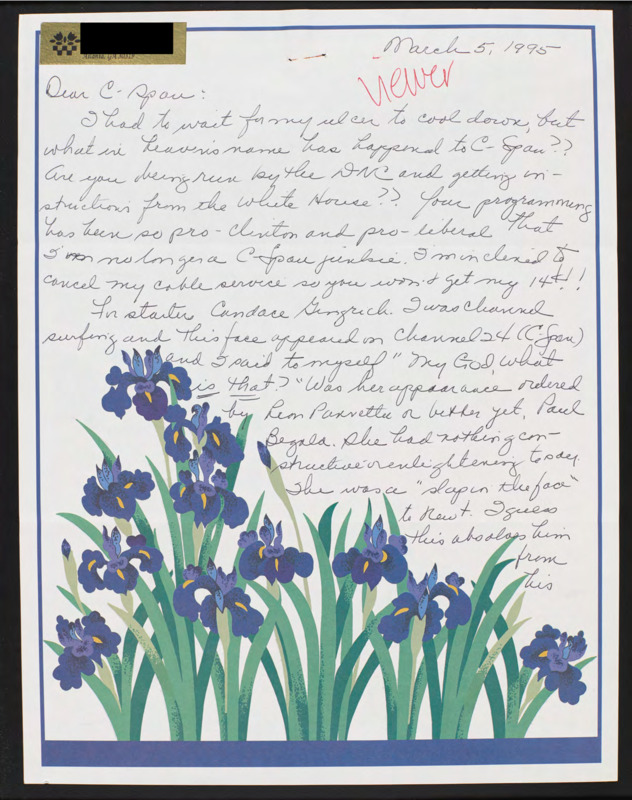 March 5, 1995
viewer
Dear C-Span:
I had to wait for my ulcer to cool down, but
what in heaven's name has happened to C-Span??
Are you being run by the DNC and getting in-
structions from the White House?? Your programming
has been so pro-Clinton and pro-liberal that
I'm no longer a C-Span junkie. I'm inclined to
cancel my cable service so you won't get my 14¢!!
For starters Candace Gingrich. I was channel
surfing and this face appeared on Channel 24 (C-Span)
and I said to myself "My God, what
is that?" Was her appearance ordered
by Leon Pannetta or better yet, Paul
Begala. She had nothing con-
structive or enlightening to say.
She was a "slap in the face"
to Newt. I guess
this absolves him
from
his